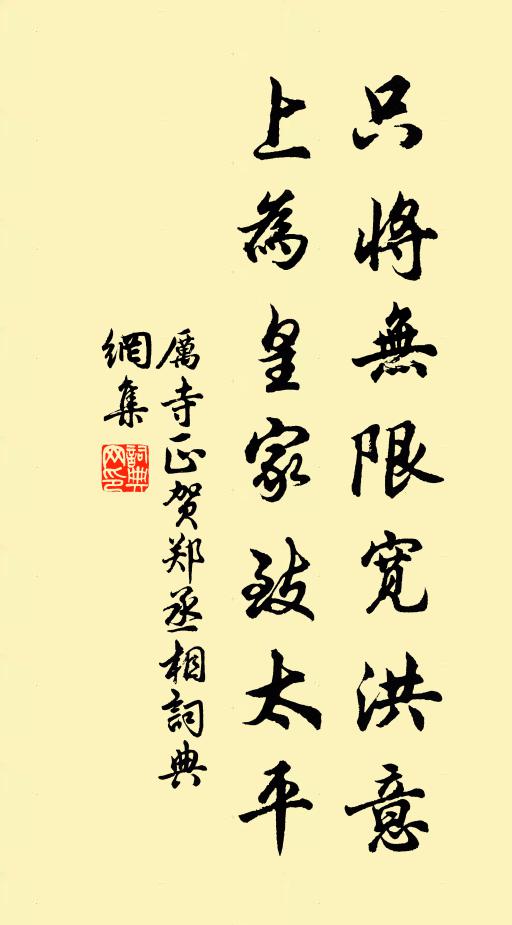 只將無限寬洪意
上為皇家致太平
厲寺正賀郑丞相詞典
網集
詞典
网印